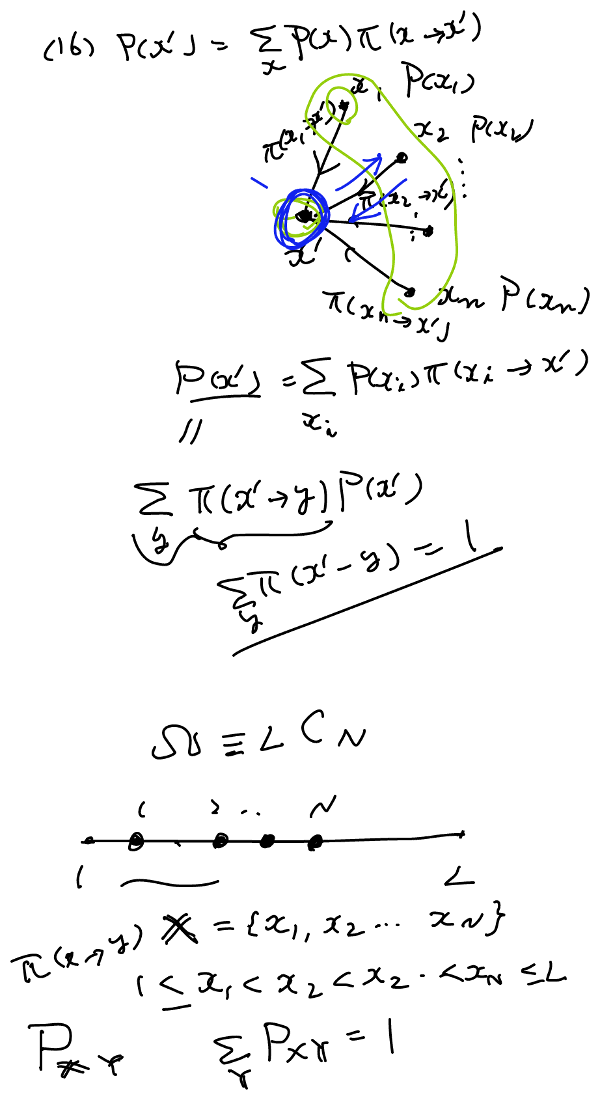 (16) P(x') = Σ_x P(x) π(x → x')
x_1 P(x_1)
π(x_1 → x')
x_2 P(x_2)
π(x_2 → x')
x'
x_n P(x_n)
π(x_n → x')
P(x') = Σ_{x_i} P(x_i) π(x_i → x')
//
Σ_y π(x' → y) P(x')
Σ_y π(x' - y) = 1
Ω ≡ L C N
1 2 .. N
1 L
π(x → y) X = {x_1, x_2 ... x_N}
1 ≤ x_1 < x_2 < x_2 . < x_N ≤ L
P_{XY} Σ_Y P_{XY} = 1